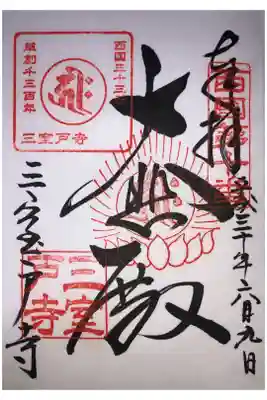 奉拝
西国第十番
平成三十年六月九日
大悲殿
西国三十三
草創千三百年
三室戸寺
三室戸寺
三室戸寺